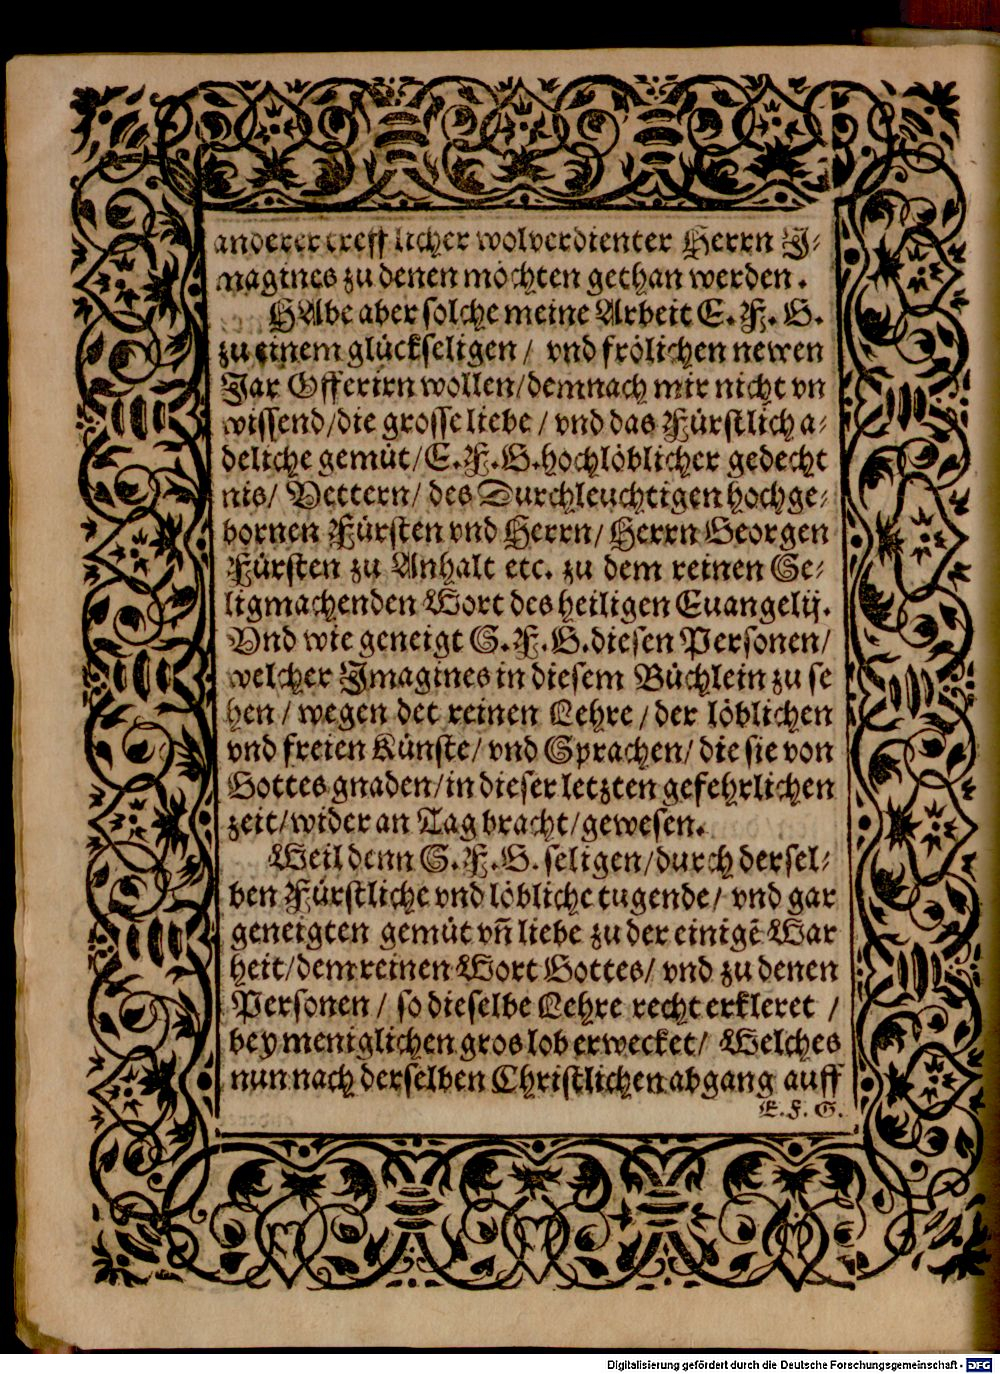 anderer trefflicher wolverdienter Herrn J⸗
magines zu denen möchten gethan werden.
HAbe aber solche meine Arbeit E. F. G.
zu einem glückseligen / vnd frölichen newen
Jar Offerirn wollen/demnach mir nicht vn
wissend/die grosse liebe / vnd das Fürstlich a⸗
deliche gemüt/E.F.G.hochlöblicher gedecht
nis/ Vettern/ des Durchleuchtigen hochge⸗
bornen Fürsten vnd Herrn/ Herrn Georgen
Fürsten zu Anhalt etc. zu dem reinen Se⸗
ligmachenden Wort des heiligen Euangelij.
Vnd wie geneigt S.F.G.diesen Personen/
welcher Jmagines in diesem Büchlein zu se
hen / wegen der reinen Lehre / der löblichen
vnd freien Künste/ vnd Sprachen/ die sie von
Gottes gnaden/in dieser letzten gefehrlichen
zeit/wider an Tag bracht/gewesen.
Weil denn S.F.G. seligen/durch dersel⸗
ben Fürstliche vnd löbliche tugende/ vnd gar
geneigten gemüt vn̄ liebe zu der einigē War
heit/dem reinen Wort Gottes/ vnd zu denen
Personen / so dieselbe Lehre recht erkleret /
bey meniglichen gros lob erwecket/ Welches
nun nach derselben Christlichen abgang auff
E. F. G.
Digitalisierung gefördert durch die Deutsche Forschungsgemeinschaft - DFG